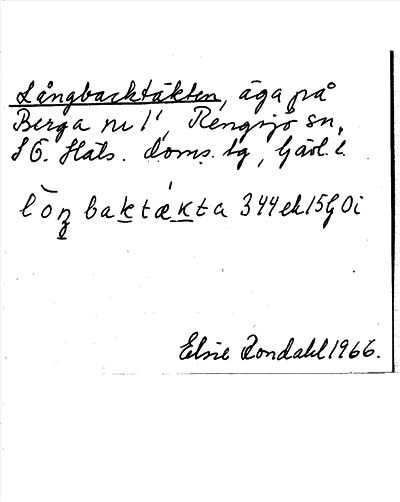 Långbacktäkten, äga på
Berga nr 1', Rengsjö sn,
S Ö. Häls. doms. tg, Gävl. l.
lòŋbaktǽkta 344 ek 15 G Öi
Elsie Rondahl 1966.